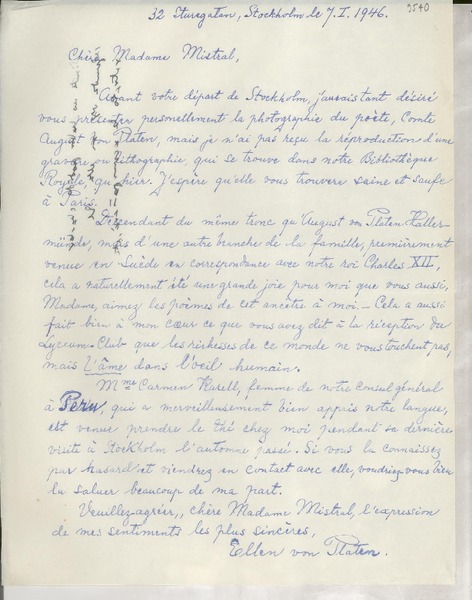 9540
32 Sturegatan, Stockholm le 7.I.1946.
Chère Madame Mistral,
Avant votre départ de Stockholm, j'aurais tant désiré
vous présenter personellement la photographie du poète, Comte
August von Platen, mais je n'ai pas reçu la réproduction d'une
gravure ou lithographie, qui se trouve dans notre Bibliothèque
Royale, qu'hier. J'espère qu'elle vous trouvera saine et saufe
à Paris.
Descendant du même tronc qu'August von Platen-Haller-
münde, mais d'une autre branche de la famille, premièrement
venue en Suède en correspondance avec notre roi Charles XII,
cela a naturellement été une grande joie pour moi que vous aussi,
Madame, aimez les poèmes de cet ancêtre à moi. – Cela a aussi
fait bien à mon cœur ce que vous avez dit à la réception du
Lyceum-Club que les richesses de ce monde ne vous touchent pas,
mais l'âme dans l'oeil humain.
Mme Carmen, femme de notre Consul général
à Peru, qui a merveilleusement bien appris notre langue,
est venue prendre le thé chez moi pendant sa dernière
visite à Stockholm l'automne passé. Si vous la connaissez
par hasard et viendrez en contact avec elle, voudriez-vous bien
la saluer beaucoup de ma part.
Veuillez agréer, chère Madame Mistral, l'expression
de mes sentiments les plus sincères,
Ellen von Platen.